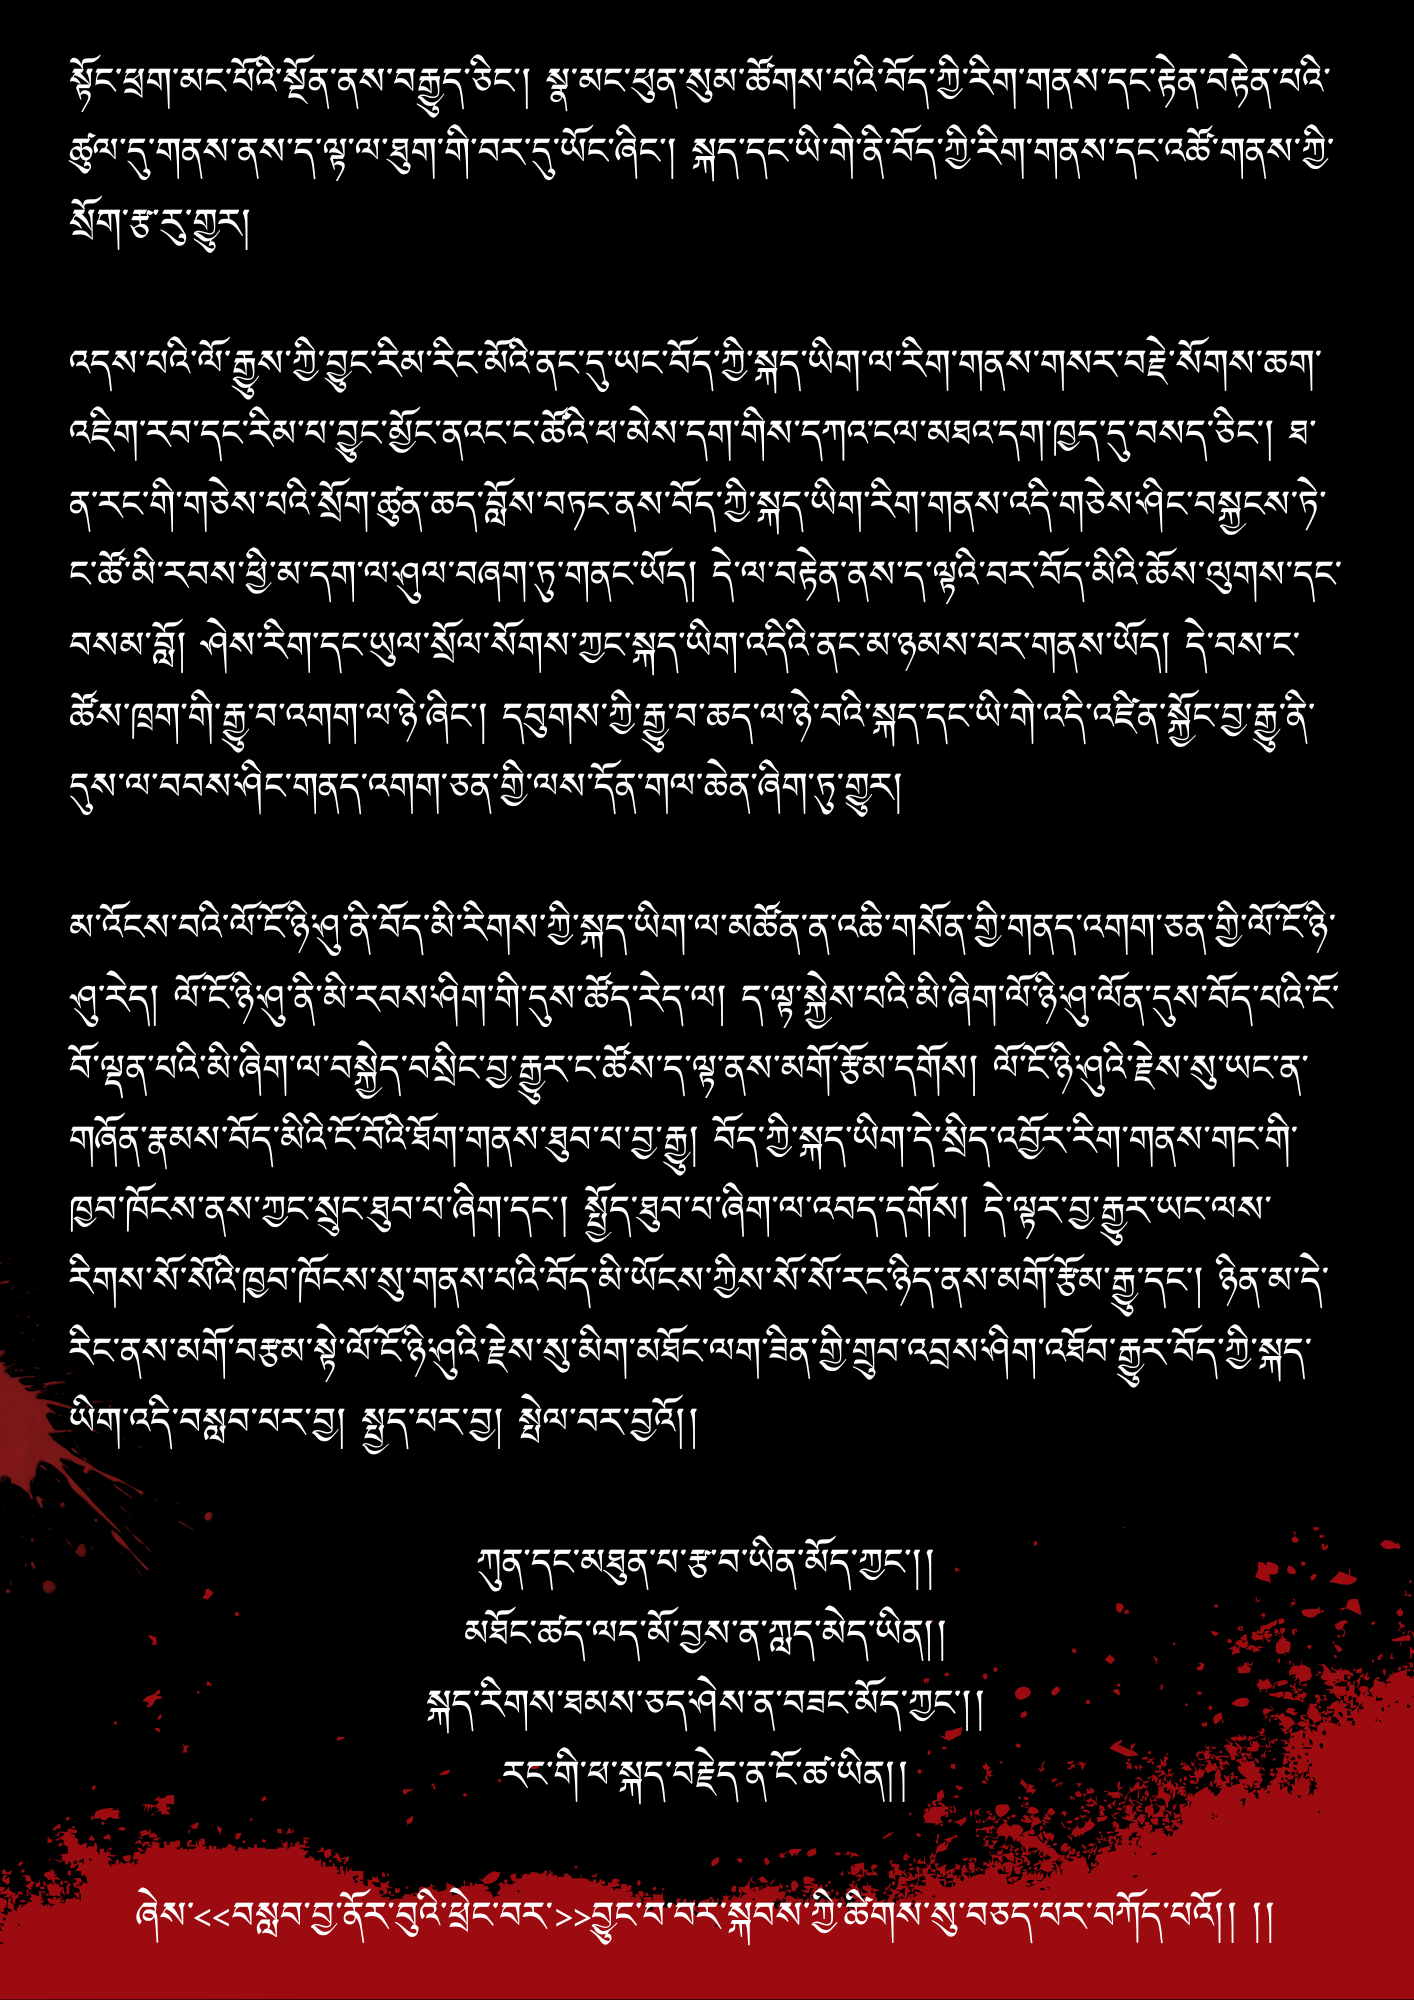 སྟོང་ཕྲག་མང་པོའི་སྔོན་ནས་བརྒྱུད་ཅིང་། སྣ་མང་ཕུན་སུམ་ཚོགས་པའི་བོད་ཀྱི་རིག་གནས་དང་རྟེན་བརྟེན་པའི་
ཚུལ་དུ་གནས་ནས་ད་ལྟ་ལ་ཐུག་གི་བར་དུ་ཡོང་ཞིང་། སྐད་དང་ཡི་གེ་ནི་བོད་ཀྱི་རིག་གནས་དང་འཚོ་གནས་ཀྱི་
སྲོག་རྩ་རུ་གྱུར།
འདས་པའི་ལོ་རྒྱུས་ཀྱི་བྱུང་རིམ་རིང་མོའི་ནང་དུ་ཡང་བོད་ཀྱི་སྐད་ཡིག་ལ་རིག་གནས་གསར་བརྗེ་སོགས་ཆག་
འཇིག་རབ་དང་རིམ་པ་བྱུང་མྱོང་ནའང་ང་ཚོའི་ཕ་མེས་དག་གིས་དཀའ་ངལ་མཐའ་དག་ཁྱད་དུ་བསད་ཅིང་། ཐ་
ན་རང་གི་གཅེས་པའི་སྲོག་ཚུན་ཆད་བློས་བཏང་ནས་བོད་ཀྱི་སྐད་ཡིག་རིག་གནས་འདི་གཅེས་ཤིང་བསྐྱངས་ཏེ་
ང་ཚོ་མི་རབས་ཕྱི་མ་དག་ལ་ཤུལ་བཞག་ཏུ་གནང་ཡོད། དེ་ལ་བརྟེན་ནས་ད་ལྟའི་བར་བོད་མིའི་ཆོས་ལུགས་དང་
བསམ་བློ། ཤེས་རིག་དང་ཡུལ་སྲོལ་སོགས་ཀྱང་སྐད་ཡིག་འདིའི་ནང་མ་ཉམས་པར་གནས་ཡོད། དེ་བས་ང་
ཚོས་ཁྲག་གི་རྒྱུ་བ་འགག་ལ་ཉེ་ཞིང་། དབུགས་ཀྱི་རྒྱུ་བ་ཆད་ལ་ཉེ་བའི་སྐད་དང་ཡི་གེ་འདི་འཛིན་སྐྱོང་བྱ་རྒྱུ་ནི་
དུས་ལ་བབས་ཤིང་གནད་འགག་ཅན་གྱི་ལས་དོན་གལ་ཆེན་ཞིག་ཏུ་གྱུར།
མ་འོངས་བའི་ལོ་ངོ་ཉི་ཤུ་ནི་བོད་མི་རིགས་ཀྱི་སྐད་ཡིག་ལ་མཚོན་ན་འཆི་གསོན་གྱི་གནད་འགག་ཅན་གྱི་ལོ་ངོ་ཉི་
ཤུ་རེད། ལོ་ངོ་ཉི་ཤུ་ནི་མི་རབས་ཤིག་གི་དུས་ཚོད་རེད་ལ། ད་ལྟ་སྐྱེས་པའི་མི་ཞིག་ལོ་ཉི་ཤུ་ལོན་དུས་བོད་པའི་ངོ་
བོ་ལྡན་པའི་མི་ཞིག་ལ་བསྐྱེད་བསྲིང་བྱ་རྒྱུར་ང་ཚོས་ད་ལྟ་ནས་མགོ་རྩོམ་དགོས། ལོ་ངོ་ཉི་ཤུའི་རྗེས་སུ་ཡང་ན་
གཞོན་རྣམས་བོད་མིའི་ངོ་བོའི་ཐོག་གནས་ཐུབ་པ་བྱ་རྒྱུ། བོད་ཀྱི་སྐད་ཡིག་དེ་སྲིད་འབྱོར་རིག་གནས་གང་གི་
ཁྱབ་ཁོངས་ནས་ཀྱང་སྲུང་ཐུབ་པ་ཞིག་དང་། སྤྱོད་ཐུབ་པ་ཞིག་ལ་འབད་དགོས། དེ་ལྟར་བྱ་རྒྱུར་ཡང་ལས་
རིགས་སོ་སོའི་ཁྱབ་ཁོངས་སུ་གནས་པའི་བོད་མི་ཡོངས་ཀྱིས་སོ་སོ་རང་ཉིད་ནས་མགོ་རྩོམ་རྒྱུ་དང་། ཉིན་མ་དེ་
རིང་ནས་མགོ་བརྩམ་སྟེ་ལོ་ངོ་ཉི་ཤུའི་རྗེས་སུ་མིག་མཐོང་ལག་ཟིན་གྱི་གྲུབ་འབྲས་ཤིག་འཐོབ་རྒྱུར་བོད་ཀྱི་སྐད་
ཡིག་འདི་བསླབ་པར་བྱ། སྤྱད་པར་བྱ། སྤེལ་བར་བྱའོ།།
ཀུན་དང་མཐུན་པ་རྩ་བ་ཡིན་མོད་ཀྱང་།།
མཐོང་ཚད་ལད་མོ་བྱས་ན་ཀླད་མེད་ཡིན།།
སྐད་རིགས་ཐམས་ཅད་ཤེས་ན་བཟང་མོད་ཀྱང་།།
རང་གི་ཕ་སྐད་བརྗེད་ན་ངོ་ཚ་ཡིན།།
ཞེས་<<བསླབ་བྱ་ནོར་བུའི་ཕྲེང་བར་>>བྱུང་བ་བར་སྐབས་ཀྱི་ཚིགས་སུ་བཅད་པར་བཀོད་པའོ།། །།